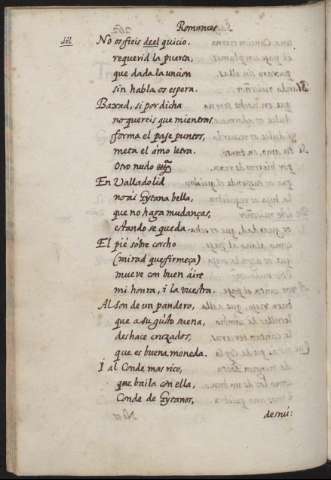 Romances
No os fieis deel quicio
requerid la puerta,
que dada la uncion
sin habla os espera.
Baxad, si por dicha
no quereis que mientras,
forma el paje puntos,
meta el amo letra.
Otro nudo
En Valladolid
no ai Gitana bella,
que no haga mudanças,
estando se queda.
El pie sobre corcho
(mirad que firmeça)
mueve con buen aire
mi honra, i la vuestra.
Al son de un pandero,
que a su gusto suena,
deshace cruzados,
que es buena moneda.
I al Conde mas rico,
que baila con ella,
Conde de Gitanos,
desnu: